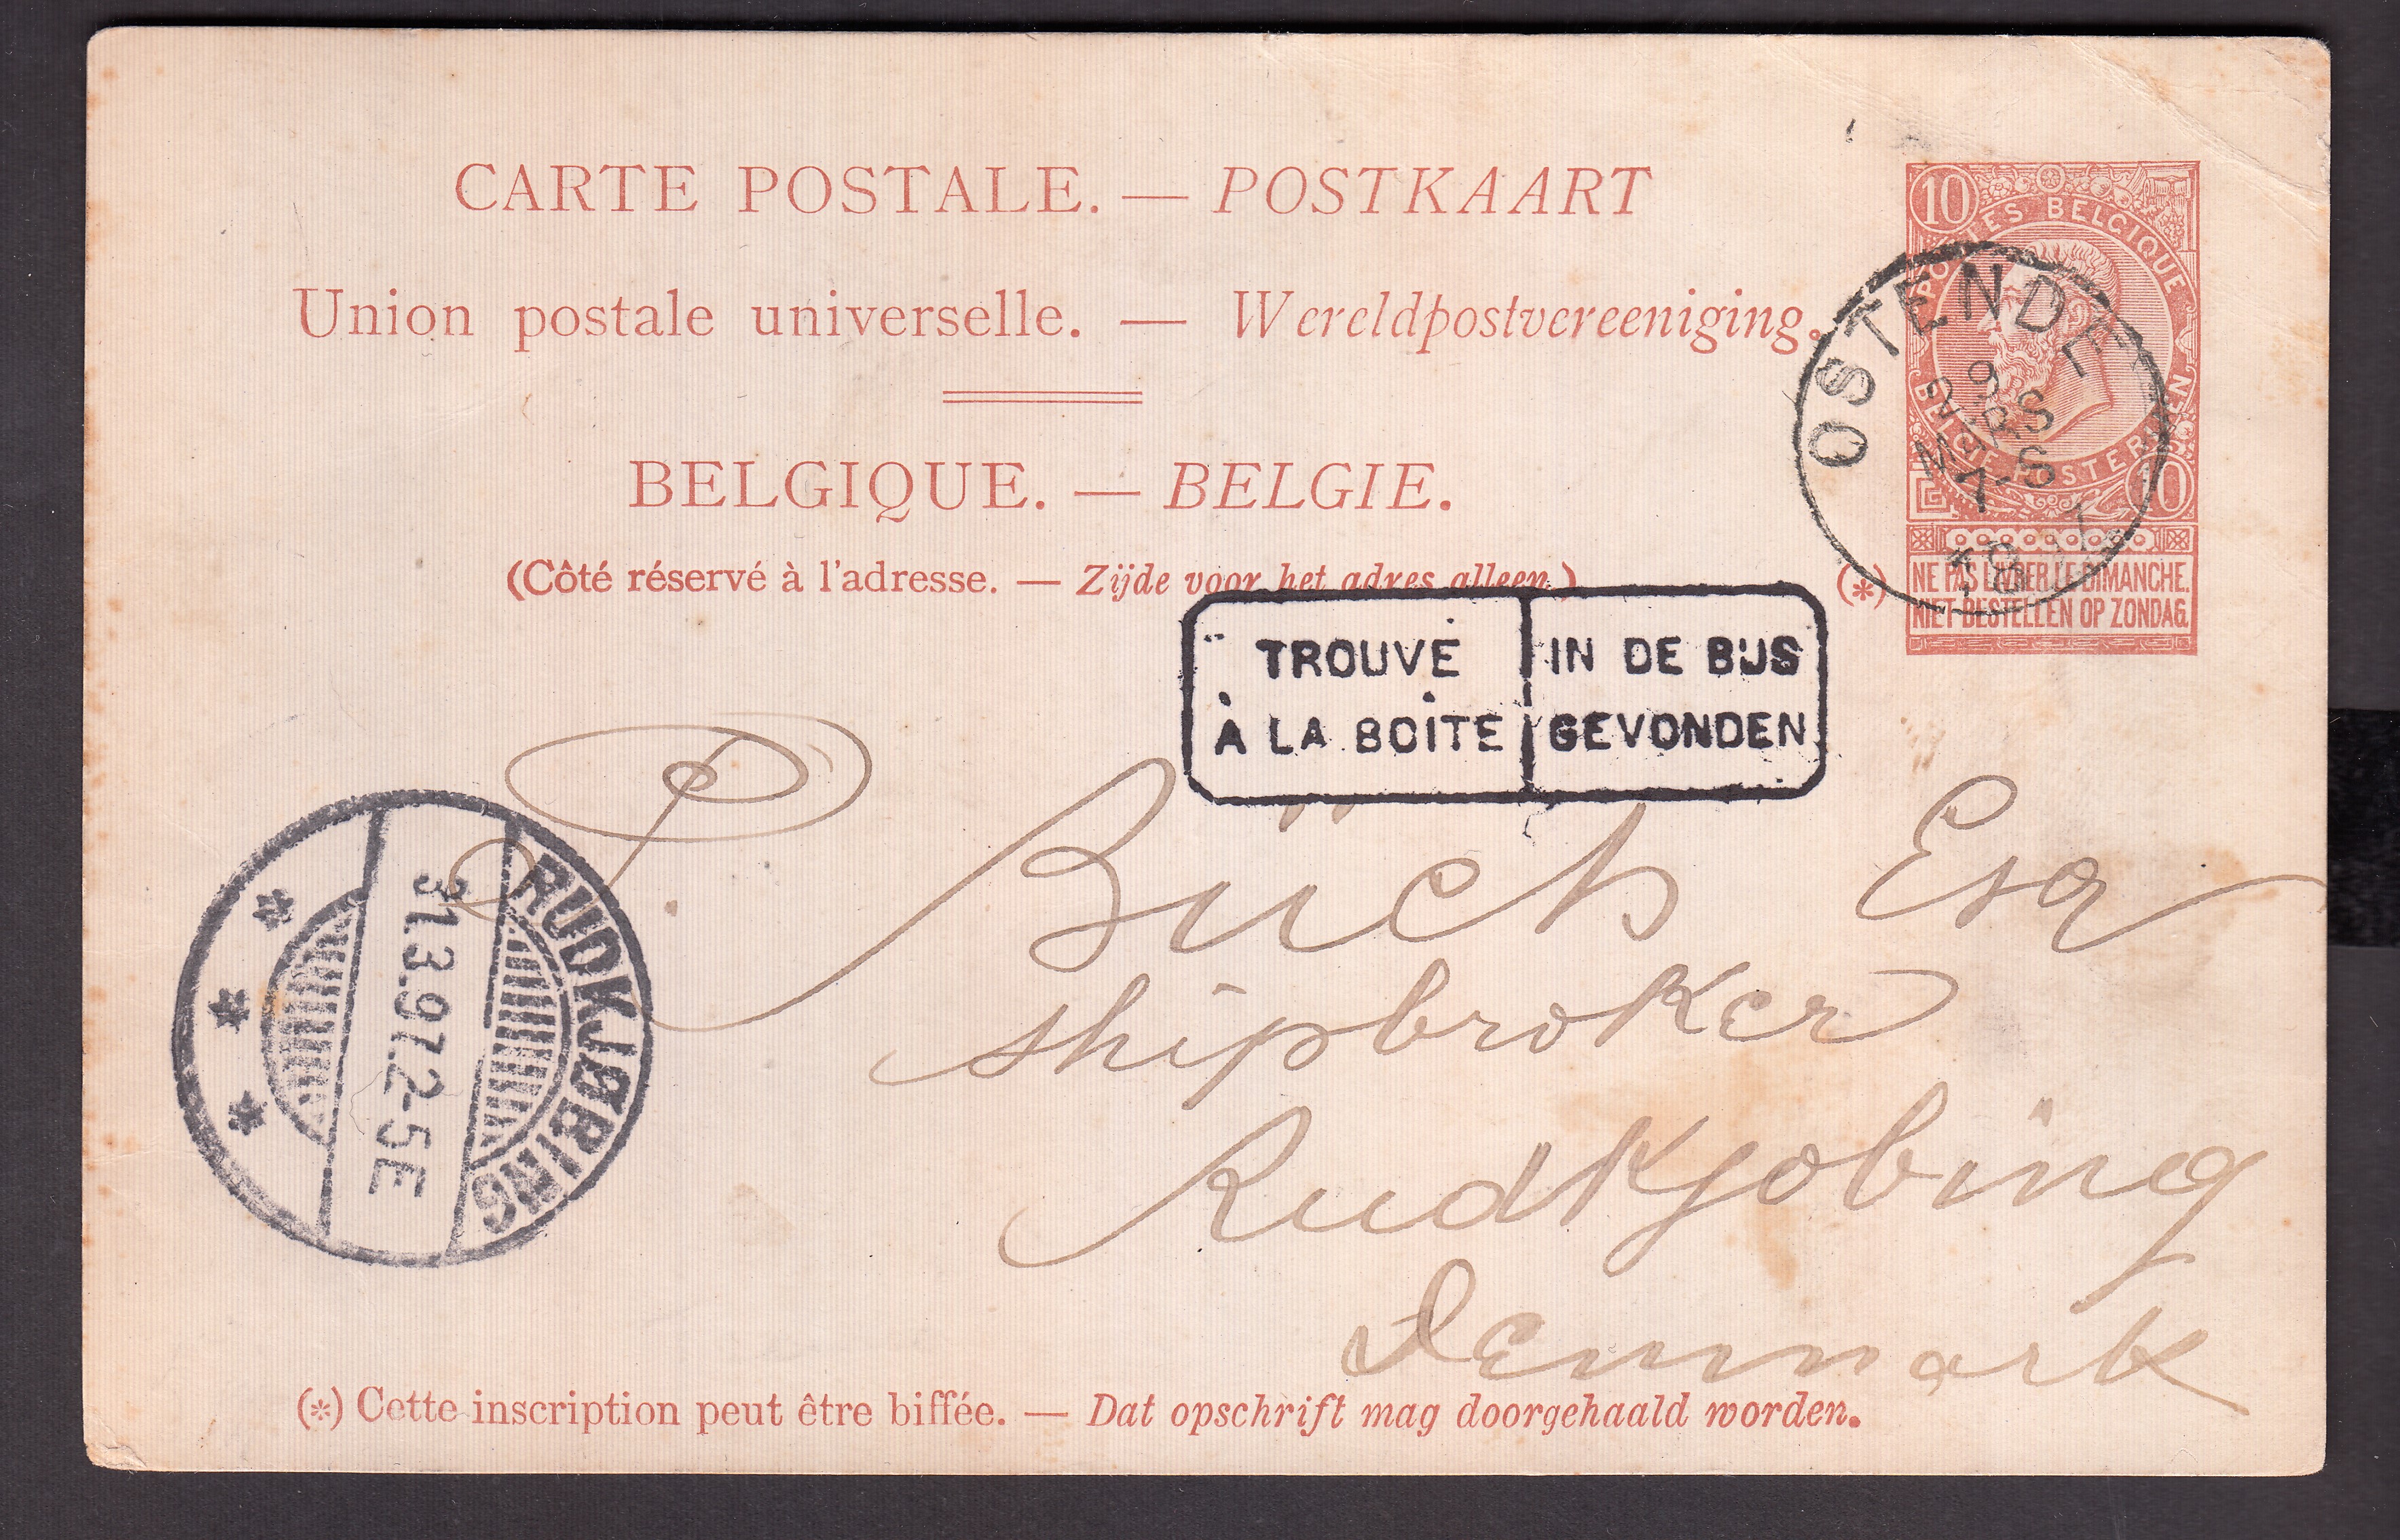 CARTE POSTALE. — POSTKAART
Union postale universelle. — Wereldpostvereeniging.
BELGIQUE. — BELGIE.
(Côté réservé à l'adresse. — Zijde voor het adres alleen.)
10
POSTES BELGIQUE
BELGIE POSTERIJEN
10
(*) NE PAS LIVRER LE DIMANCHE.
NIET BESTELLEN OP ZONDAG.
OSTENDE
29
MARS
7-S
TROUVÉ
À LA BOÎTE
IN DE BUS
GEVONDEN
P Büch Esq
shipbroker
Rudkjobing
Denmark
RUDKJØBING
31.3.97.2-5E
(*) Cette inscription peut être biffée. — Dat opschrift mag doorgehaald worden.